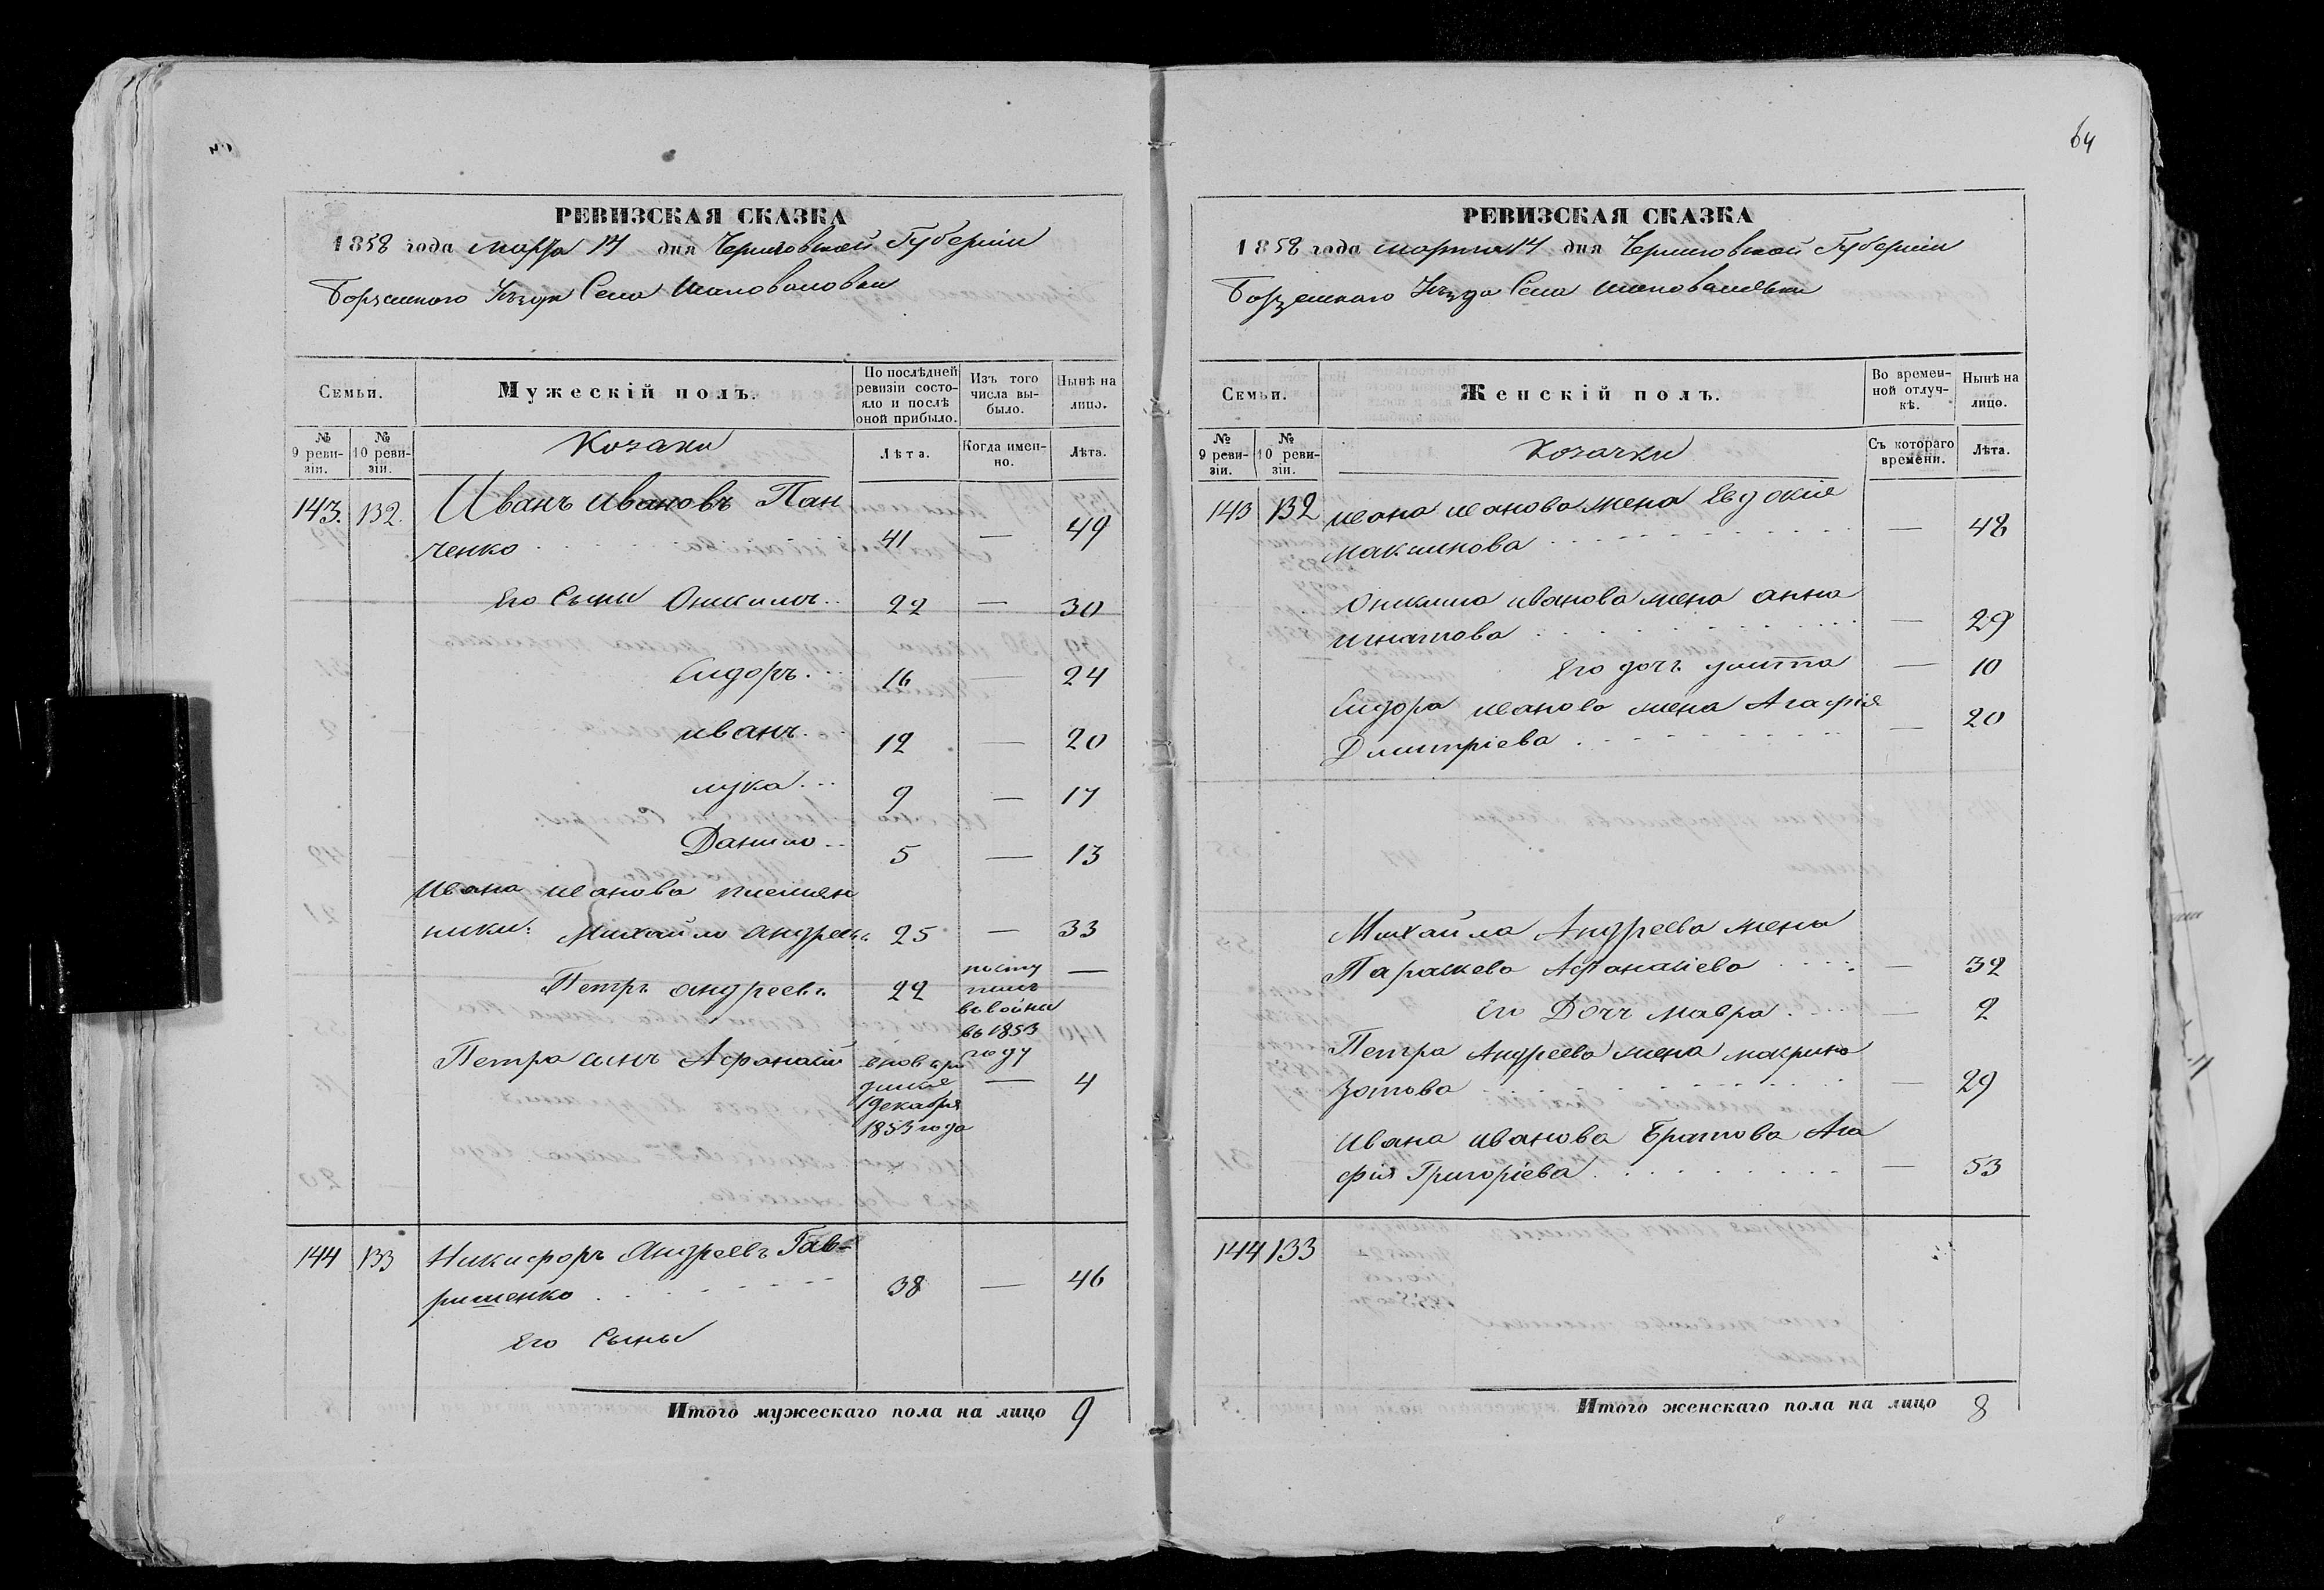 64
РЕВИЗСКАЯ СКАЗКА
1858 года марта 14 дня Черниговской Губерніи
Борзенского Уѣзда Села Шаповаловки
Семьи.
Мужескій полъ.
По послѣдней ревизіи состояло и послѣ оной прибыло.
Изъ того числа выбыло.
Нынѣ на лицо.
№ 9 ревизіи.
№ 10 ревизіи.
Козаки
Лѣта.
Когда именно.
Лѣта.
143. 132. Иванъ Ивановъ Пан
ченко 41 — 49
Его Сыны Оникимъ 22 — 30
Сидоръ 16 — 24
Иванъ 12 — 20
Лука 9 — 17
Данило 5 — 13
Ивана Иванова племян
ники: Михайло Андреевъ 25 — 33
Петръ Андреевъ 22 посту
пилъ
въ войска
въ 1853
году —
Петра сынъ Афанасий вновь ро
дился
1 декабря
1853 года — 4
144 133 Никифоръ Андреевъ Гав-
ришенко 38 — 46
Его Сыны
Итого мужескаго пола на лицо 9
РЕВИЗСКАЯ СКАЗКА
1858 года марта 14 дня Черниговской Губерніи
Борзенскаго Уѣзда Села Шаповаловки
Семьи.
Женскій полъ.
Во временной отлучкѣ.
Нынѣ на лицо.
№ 9 ревизіи.
№ 10 ревизіи.
Козачки
Съ котораго времени.
Лѣта.
143 132 Ивана Иванова жена Евдокія
Максимова — 48
Оникима Иванова жена Анна
Игнатова — 29
Его дочь — 10
Сидора Иванова жена Агафія
Дмитріева — 20
Михайла Андреева жена
Параскева Афанасіева — 32
Его Дочь Мавра — 2
Петра Андреева жена Макрина
Зотова — 29
Ивана Иванова Братова Ага
фія Григоріева — 53
144 133
Итого женскаго пола на лицо 8